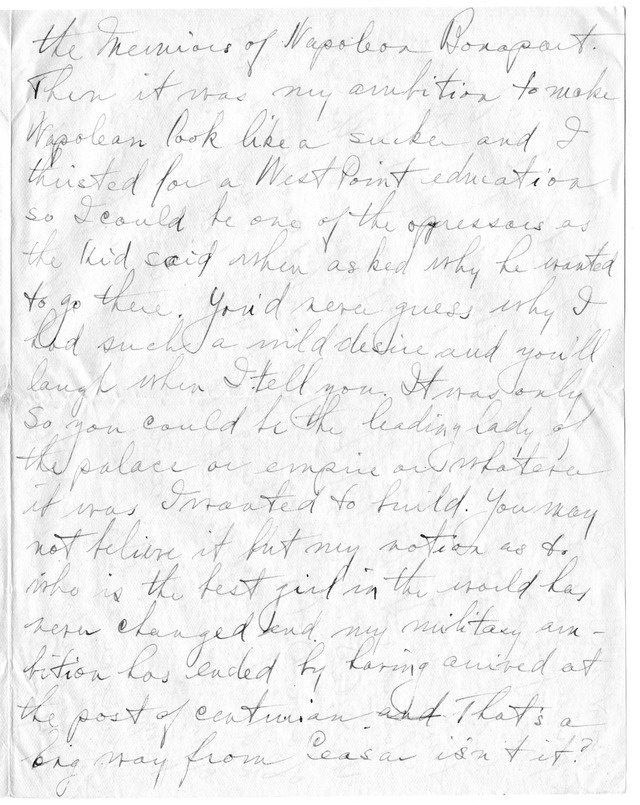 the Memoirs of Napoleon Bonapart.
Then it was my ambition to make
Napolean look like a sucker and I
thirsted for a West Point education
so I could be one of the oppressors as
the kid said when asked why he wanted
to go there. You'd never guess why I
had such a wild desire and you'll
laugh when I tell you. It was only
so you could be the leading lady of
the palace or empire or whatever
it was I wanted to build. You may
not believe it but my notion as to
who is the best girl in the world has
never changed and my military am-
bition has ended by having arrived at
the post of centurian and That's a
long way from Ceasar isn't it?